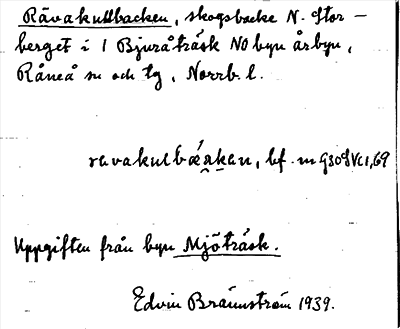 Rävakullbacken, skogsbacke N. Stor-
berget i 1 Bjuråträsk NO byn årbyn,
Råneå sn och tg, Norrb. l.
ravakulbäakan, bf. m
Uppgiften från byn Mjöträsk.
Edvin Brännström 1939.